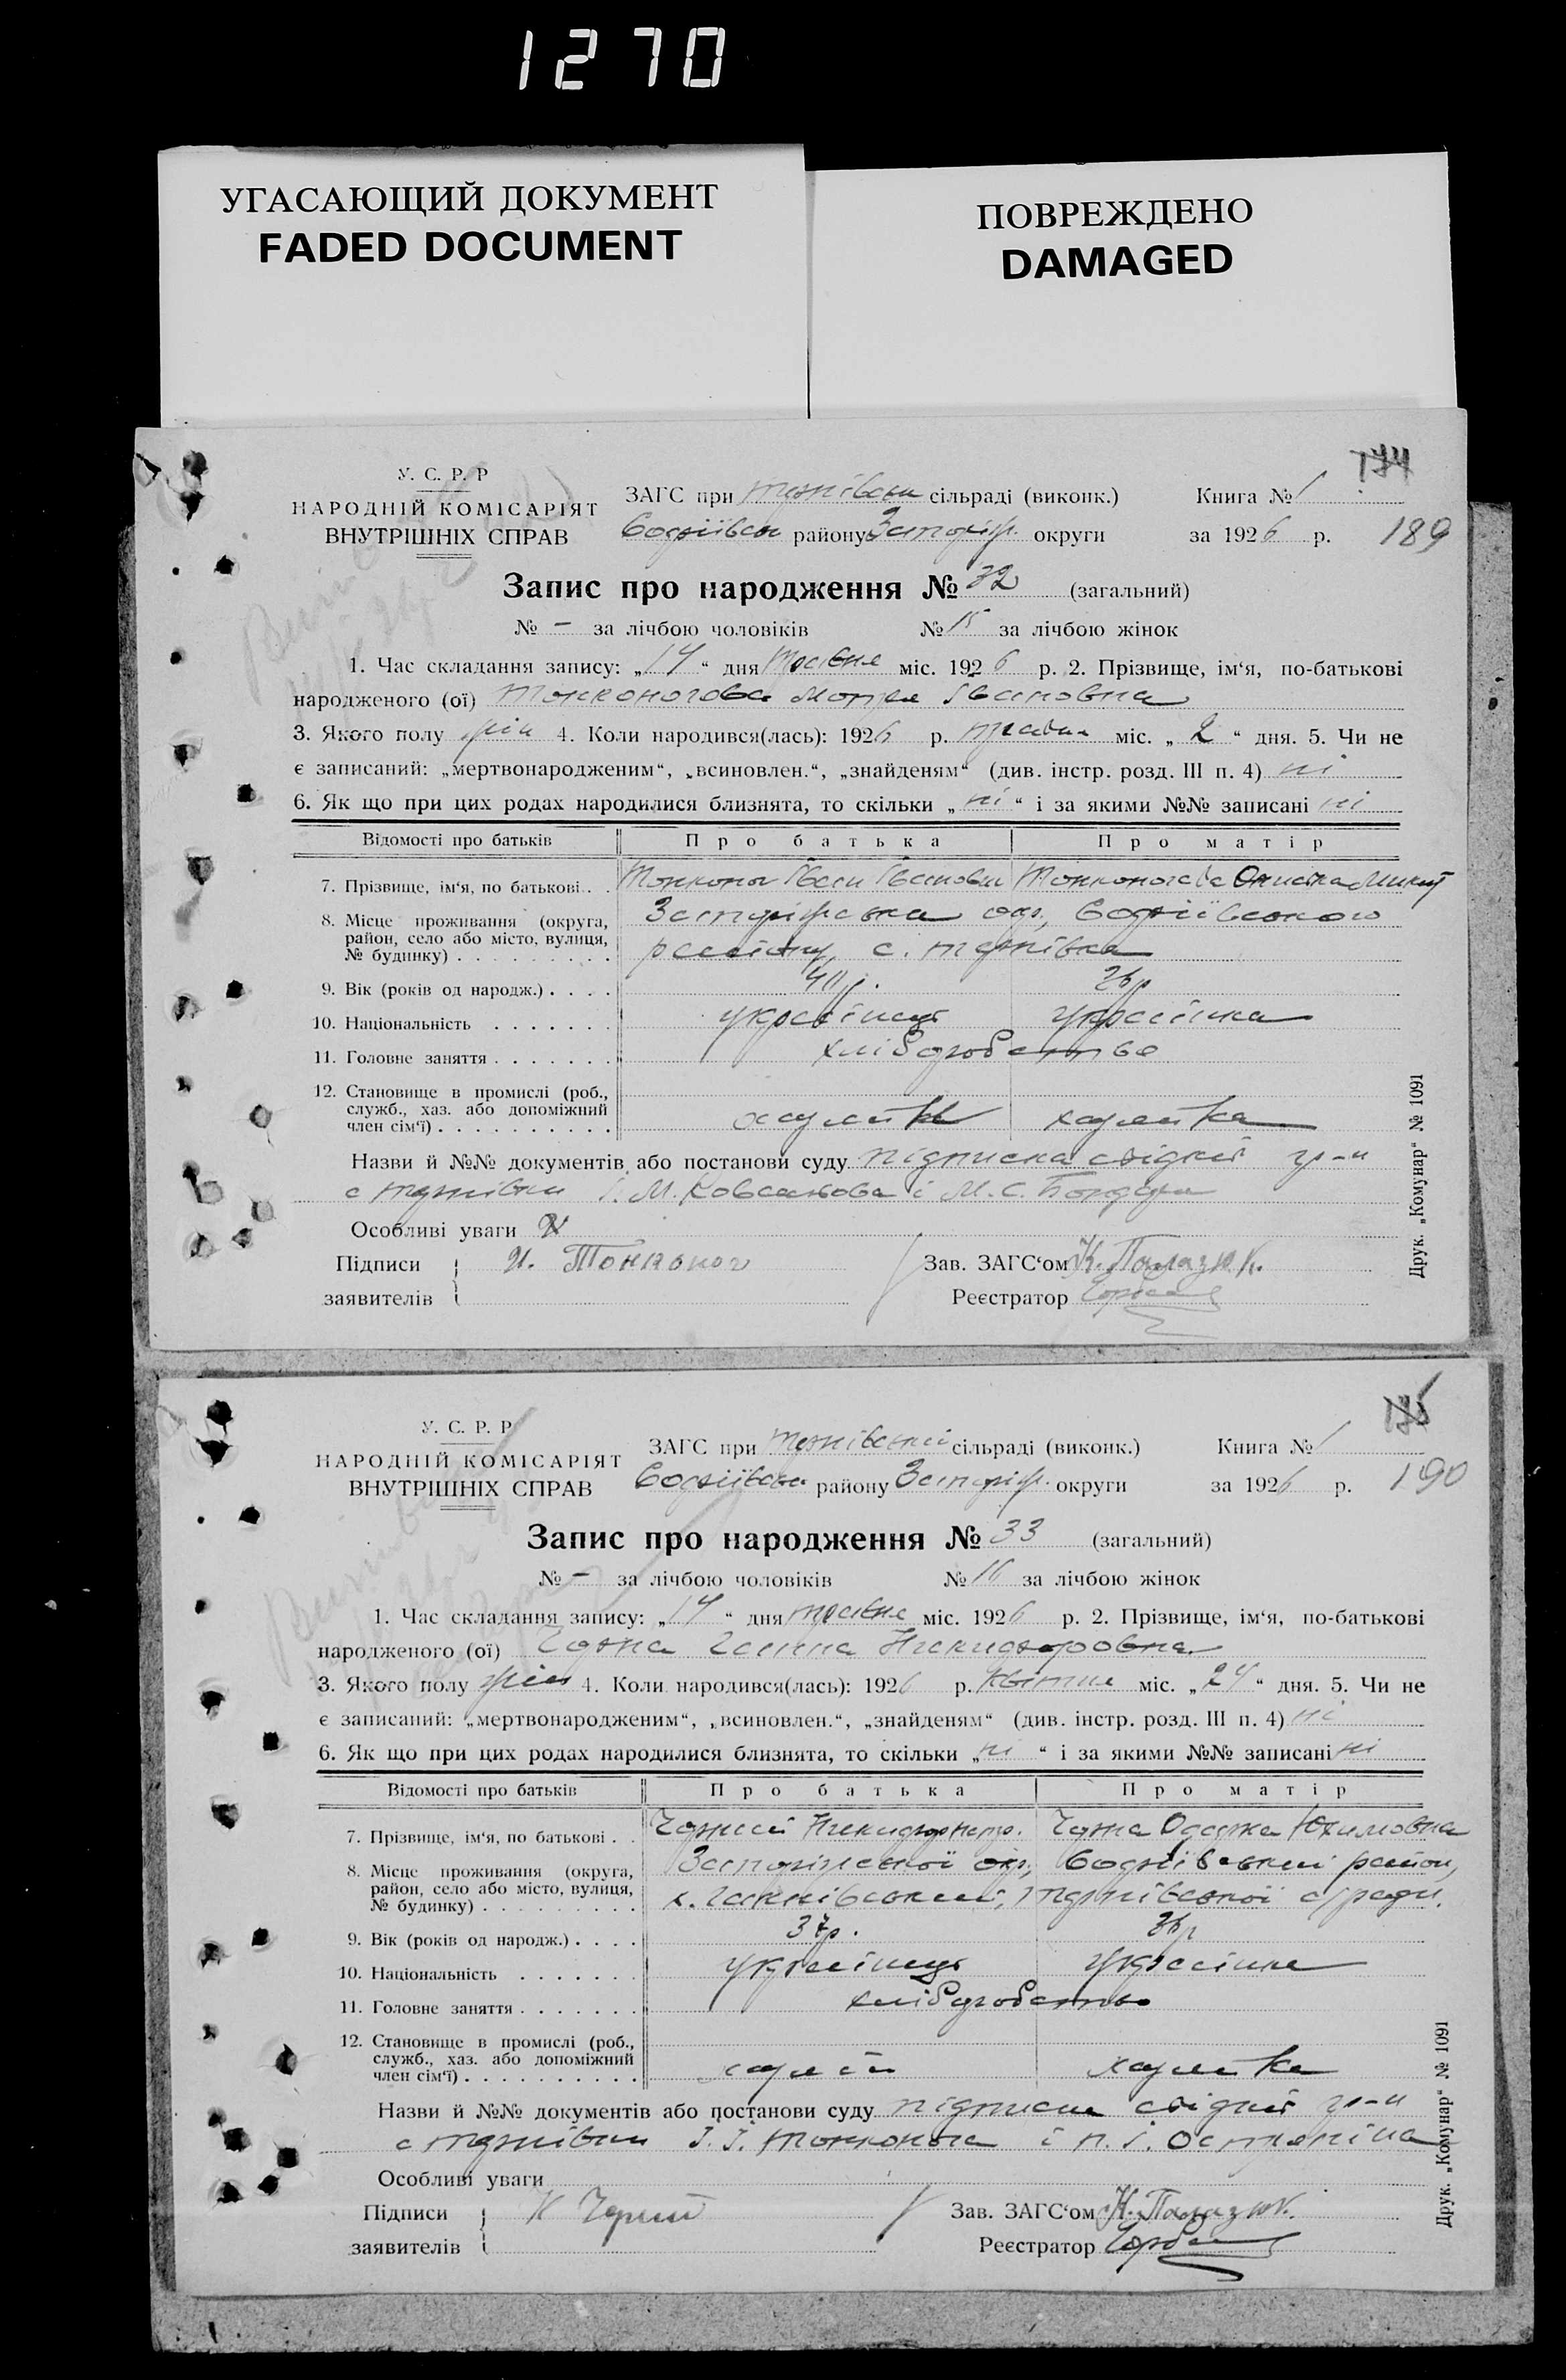 1270
УГАСАЮЩИЙ ДОКУМЕНТ
FADED DOCUMENT
ПОВРЕЖДЕНО
DAMAGED
174
У. С. Р. Р
НАРОДНІЙ КОМІСАРІЯТ
ВНУТРІШНІХ СПРАВ
ЗАГС при сільраді (виконк.) Книга № 1
району Запоріж. округи за 1926 р. 189
Запис про народження № 32 (загальний)
№ – за лічбою чоловіків № 15 за лічбою жінок
1. Час складання запису: „14“ дня травня міс. 1926 р. 2. Прізвище, ім‘я, по-батькові
народженого (ої) Тонконогова Мотря Івановна
3. Якого полу жін 4. Коли народився(лась): 1926 р. травня міс. „2“ дня. 5. Чи не
є записаний: „мертвонародженим“, „всиновлен.“, „знайденям“ (див. інстр. розд. III п. 4) ні
6. Як що при цих родах народилися близнята, то скільки „ні“ і за якими №№ записані ні
Відомості про батьків Про батька Про матір
7. Прізвище, ім‘я, по батькові . . Тонконог Іван Іванови Тонконогова
8. Місце проживання (округа, Запоріжська окр.,
район, село або місто, вулиця, району, с.
№ будинку) . . . . . . . . .
9. Вік (років од народж.) . . . . р. 26 р
10. Національність . . . . . . . українець українка
11. Головне заняття . . . . . . . хліборобство
12. Становище в промислі (роб.,
служб., хаз. або допоміжний
член сім‘ї) . . . . . . . . . .
Назви й №№ документів або постанови суду підписка свідків гр-н
с і М. С. Бондаря
Особливі уваги
Підписи И. Тонконог Зав. ЗАГС‘ом К. Палазюк.
заявителів Реєстратор
Друк. „Комунар“ № 1091
175
У. С. Р. Р
НАРОДНІЙ КОМІСАРІЯТ
ВНУТРІШНІХ СПРАВ
ЗАГС при сільраді (виконк.) Книга № 1
району Запоріж. округи за 1926 р. 190
Запис про народження № 33 (загальний)
№ – за лічбою чоловіків № 16 за лічбою жінок
1. Час складання запису: „14“ дня травня міс. 1926 р. 2. Прізвище, ім‘я, по-батькові
народженого (ої) Ганна Никифоровна
3. Якого полу жін 4. Коли народився(лась): 1926 р. квітня міс. „24“ дня. 5. Чи не
є записаний: „мертвонародженим“, „всиновлен.“, „знайденям“ (див. інстр. розд. III п. 4) ні
6. Як що при цих родах народилися близнята, то скільки „ні“ і за якими №№ записані ні
Відомості про батьків Про батька Про матір
7. Прізвище, ім‘я, по батькові . . Никифор Петр. Одарка Юхимовна
8. Місце проживання (округа, Запоріжської окр., район,
район, село або місто, вулиця, х. Ганнівський, с/ради.
№ будинку) . . . . . . . . .
9. Вік (років од народж.) . . . . 37 р. 36 р
10. Національність . . . . . . . українець українка
11. Головне заняття . . . . . . . хліборобство
12. Становище в промислі (роб.,
служб., хаз. або допоміжний
член сім‘ї) . . . . . . . . . .
Назви й №№ документів або постанови суду підписка свідків гр-н
с І. І. Тонконога і П. І.
Особливі уваги
Підписи Н Зав. ЗАГС‘ом К. Палазюк.
заявителів Реєстратор
Друк. „Комунар“ № 1091